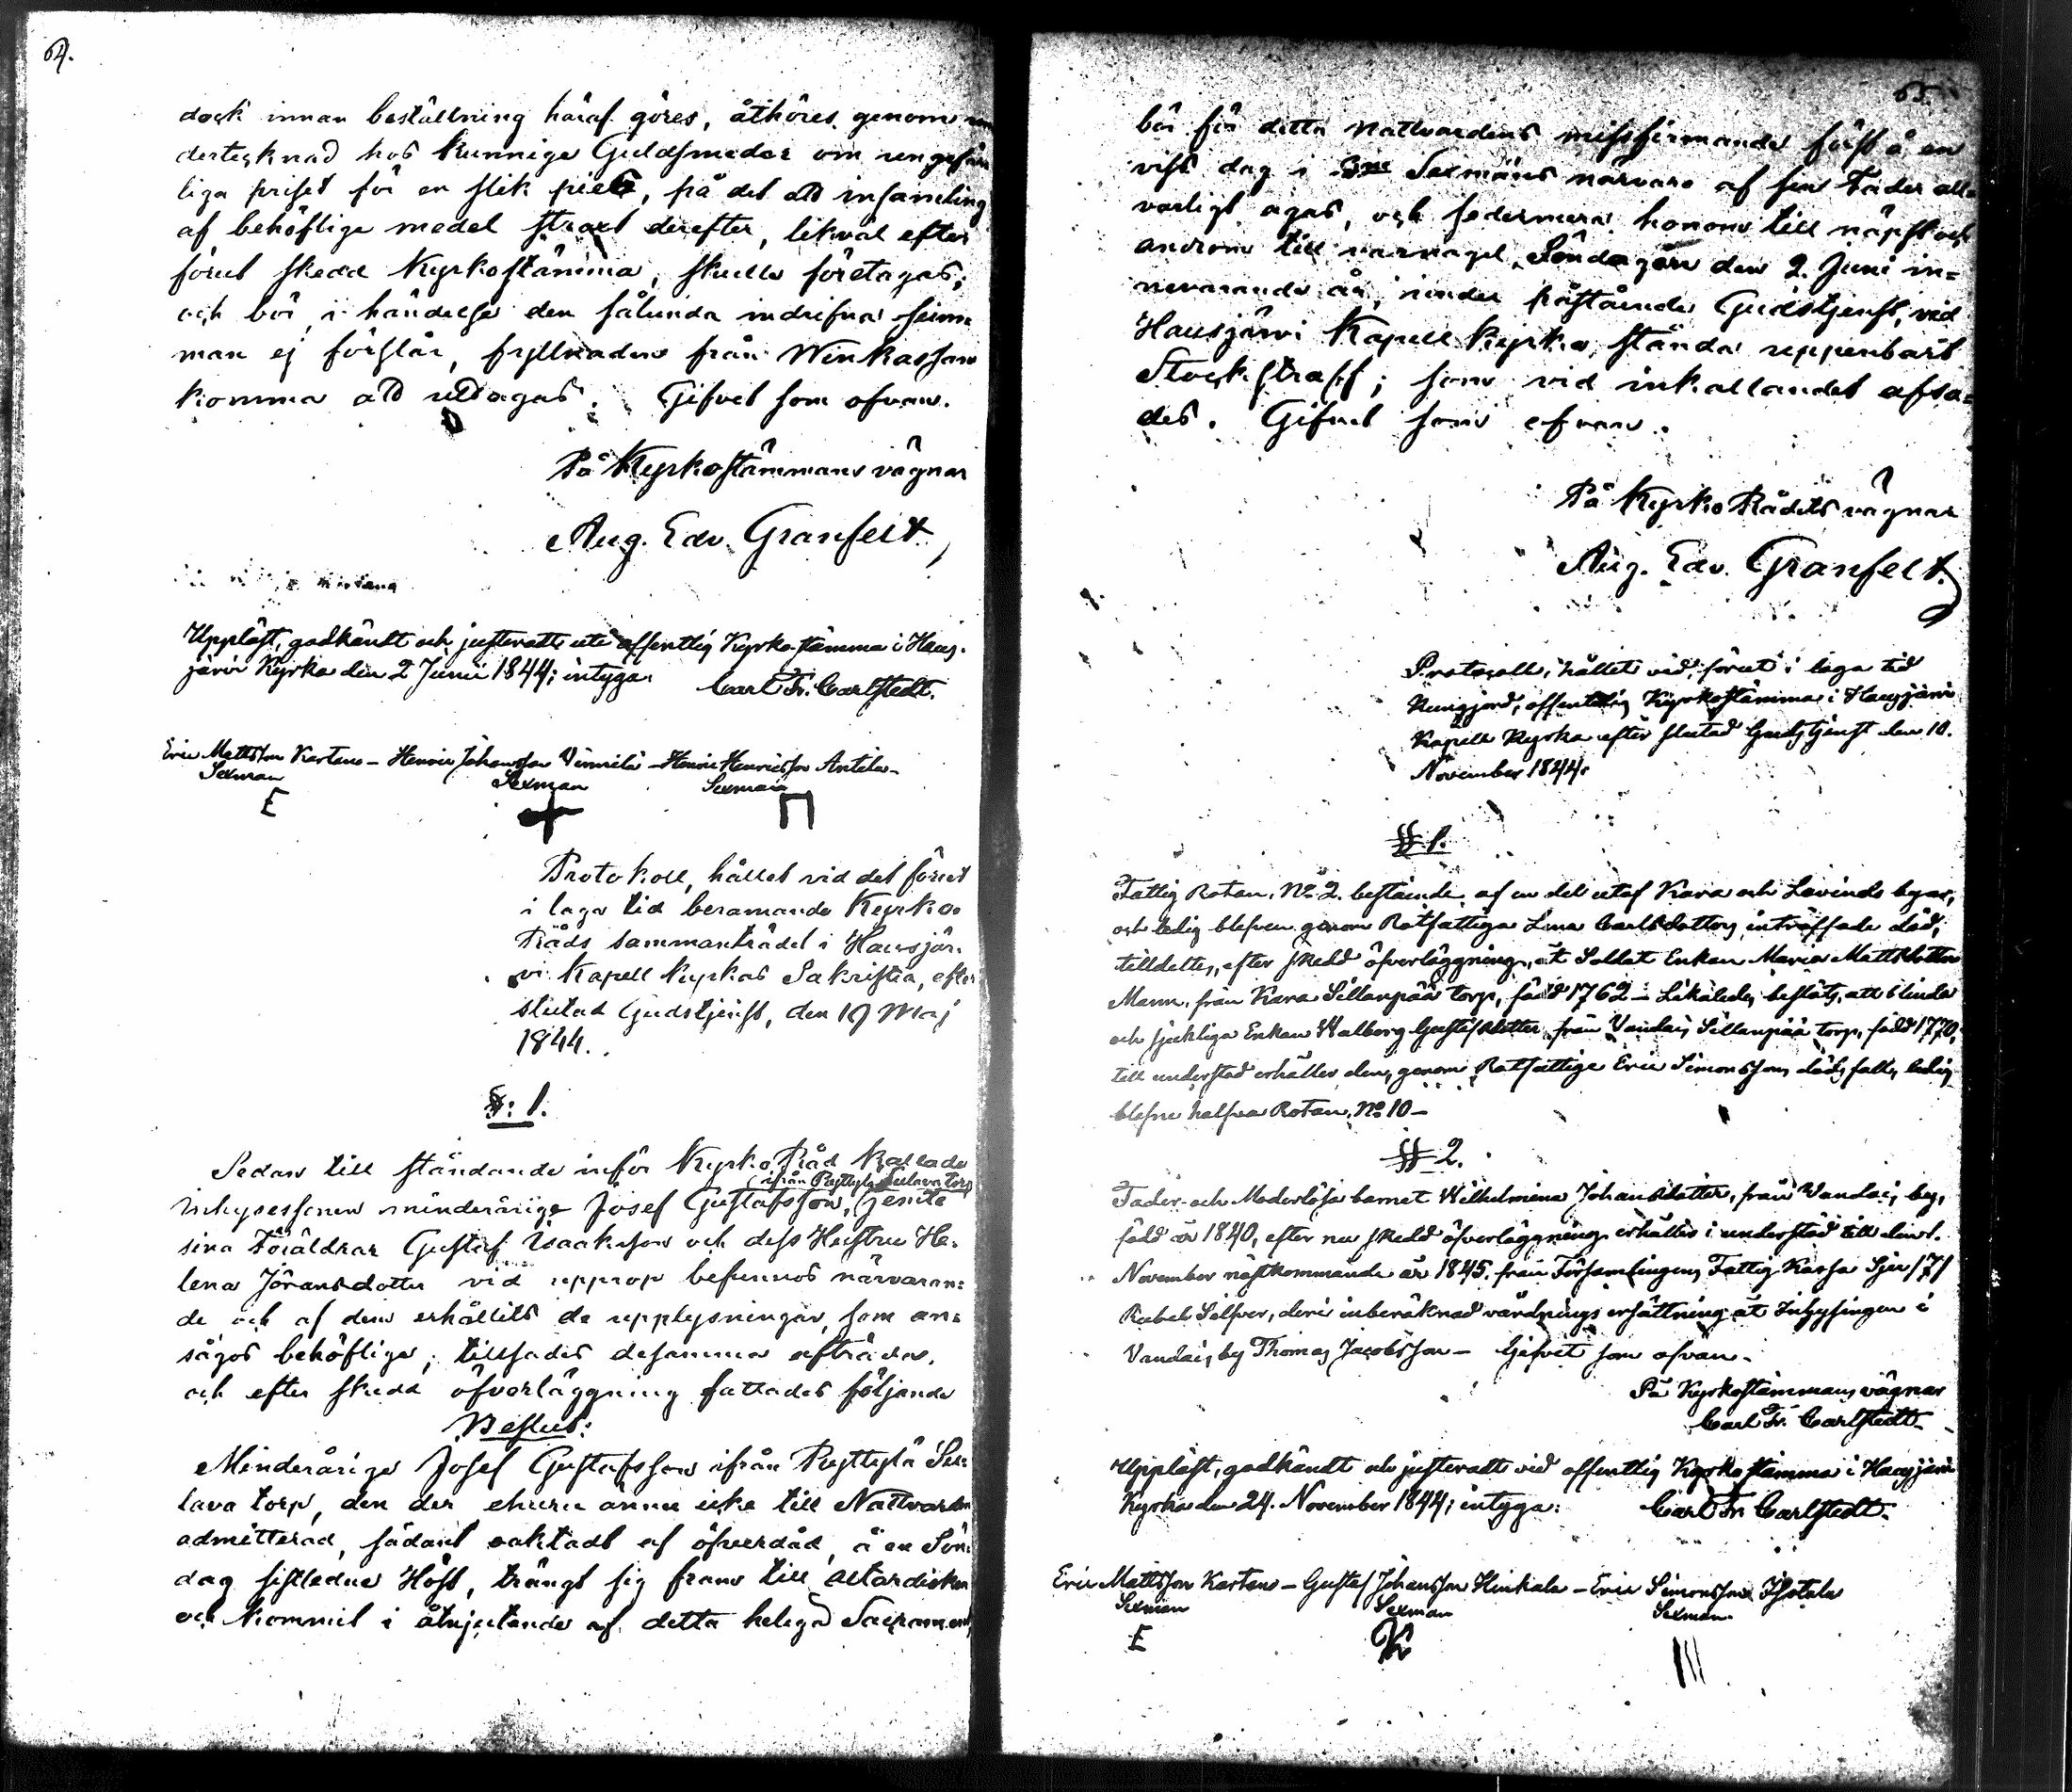 64.
dock innan beställning häraf göres, åthöres genom un
dertecknad hos kunnige Guldsmeder om ungefär
liga priset för en slik piece, på det att insamling
af behöflige medel straxt derefter, likväl efter
förut skedd Kyrkostämma, skulle företagas;
och bör, i händelse den sålunda indrifna sum
man ej förslår, fyllnaden från Winkassan
komma att uttagas. Gifvet som ofvan.
På Kyrkostämmans vägnar
Aug. Edv. Granfelt,
Uppläst, godkändt och justeradt uti offentlig Kyrkostämma i Haus-
järvi Kyrka den 2 Junii 1844; intyga:
Carl Fr. Carlstedt.
Eric Mattsson Kartano – Henric Johansson Vinnilä – Henric Henricsson Antila –
Sexman Sexman Sexman
E
Protokoll, hållet vid det förut
i laga tid beramande Kyrko-
Råds sammanträdet i Hausjär-
vi Kapell Kyrkas Sakristia, efter
slutad Gudstjenst, den 19 Maj
1844.
§: 1.
Sedan till ståndande inför Kyrko Råd kallade
(ifrån Ryttylä Sulava torp
inhysessonen minderårige Josef Gustafsson, jemte
sina Föräldrar Gustaf Isaaksson och dess Hustru He-
lena Jöransdotter vid upprop befunnos närvaran-
de och af dem erhållits de upplysningar, som an-
sågos behöflige; tillsades desamma afträda,
och efter skedd öfverläggning fattades följande
Beslut:
Minderårige Josef Gustafsson ifrån Ryttylä Su-
lava torp, den der ehuru ännu icke till Nattvarden
admitterad, sådant oaktadt af öfverdåd, å en Sön-
dag sistledne Höst, trängt sig fram till Altardisken
och kommit i åtnjutande af detta heliga Sacrament,
65.
bör för detta Nattvardens missfirmande först å en
viss dag i 3ne Sexmäns närvaro af sin Fader all-
varligt agas, och sedermera honom till näpst och
androm till varnagel, Söndagen den 2. Juni in-
nevarande år, under påstående Gudstjenst, vid
Hausjärvi Kapell kyrka, stånda uppenbart
Stockstraff; som vid inkallandet afsa-
des. Gifvet som ofvan.
På Kyrko Rådets vägnar
Aug. Edv. Granfelt.
Protocoll, hållet vid, förut i laga tid
kungjord, offentlig Kyrkostämma i Hausjärvi
Kapell Kyrka efter slutad Gudstjenst den 10.
November 1844.
§ 1.
Fattig Rotan, No 2. bestående af en del utaf Kara och Lavinds byar,
och ledig blefven genom Rotfattiga Lena Carlsdotters inträffade död,
tilldeltes, efter skedd öfverläggning, åt Soldat Enkan Maria Mattsdotter
Mann, från Kara Sillanpää torp, född 1762 – Likaledes beslöts, att blinda
och sjukliga Enkan Walborg Gustafsdotter från Vandais Sillanpää torp, född 1770,
till understöd erhåller den, genom Rotfattige Eric Simonssons dödsfall, ledig
blefne halfva Rotan, No 10 –
§ 2.
Fader- och Moderlösa barnet Wilhelmina Johansdotter, från Vandais by,
född år 1840, efter nu skedd öfverläggning erhålles i understöd till den 1.
November nästkommande år 1845. från Församlingens Fattig Kassa Sju /7/
Rubel Silfver, deri inberäknad vårdnings ersättning åt Inhysingen i
Vandais by Thomas Jacobsson – Gifvet som ofvan –
På Kyrkostämmans vägnar
Carl Fr. Carlstedt –
Uppläst, godkändt och justeradt vid offentlig Kyrkostämma i Hausjärvi
Kyrka den 24. November 1844; intyga:
Carl Fr. Carlstedt.
Eric Mattsson Kartano – Gustaf Johansson Hinkala – Eric Simonsson Isotalo
Sexman Sexman Sexman
E